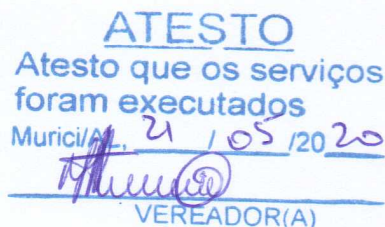 ATESTO
Atesto que os serviços
foram executados
Murici/AL, 21 / 05 /20 20
VEREADOR(A)